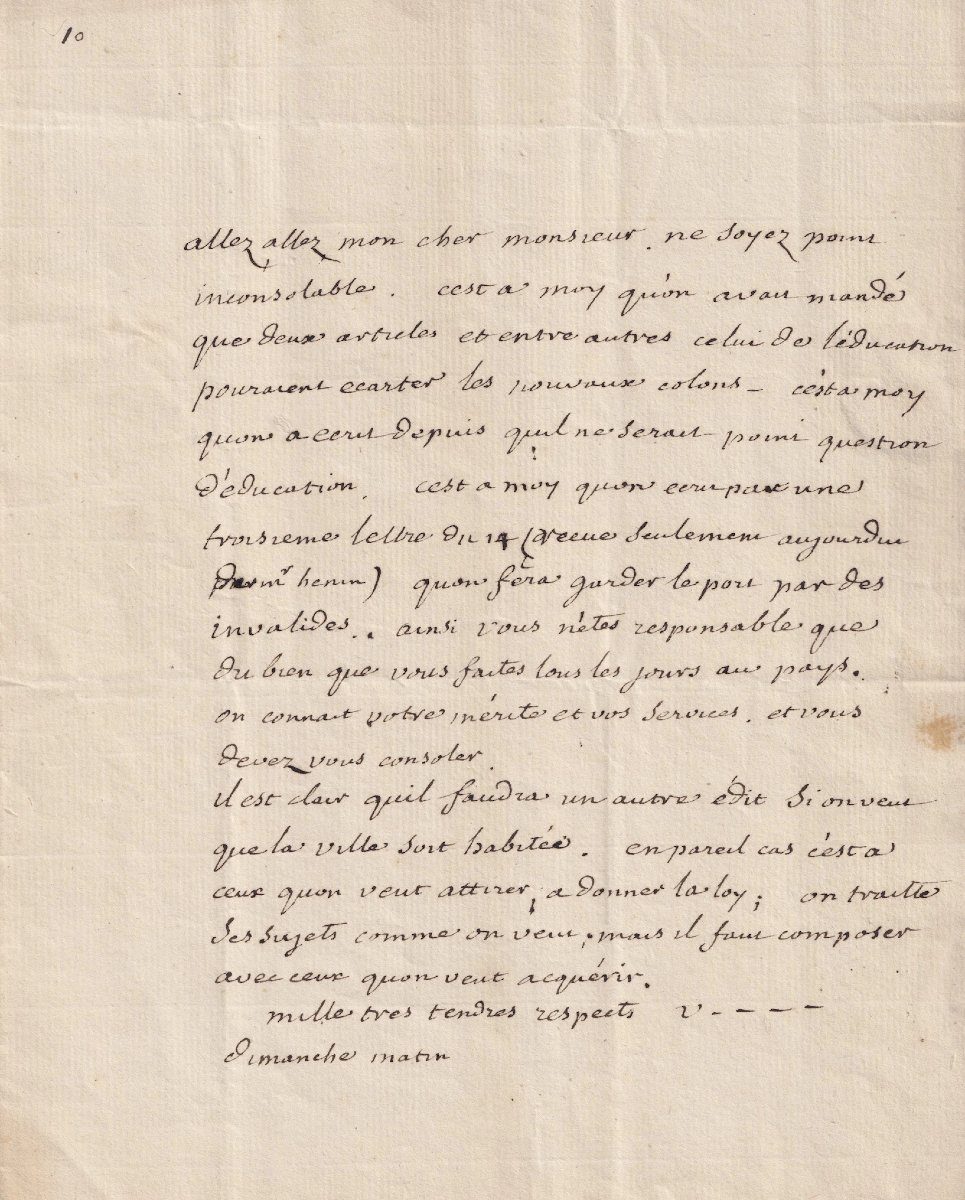 10
allez allez mon cher monsieur. ne soyez point
inconsolable. cest a moy qu'on avait mandé
que deux articles et entre autres celui de l'éducation
pouraient ecarter les nouvaux colons – c'est a moy
quon a ecrit depuis quil ne serait point question
d'éducation. cest a moy quon ecrit par une
troisieme lettre du 14 (receue seulement aujourdui
par mr henin) quon fera garder le port par des
invalides. ainsi vous n'etes responsable que
du bien que vous faites tous les jours au pays.
on connait votre mérite et vos services. et vous
devez vous consoler.
il est clair quil faudra un autre édit si on veut
que la ville soit habitée. en pareil cas c'est a
ceux quon veut attirer, a donner la loy; on traitte
ses sujets comme on veut; mais il faut composer
avec ceux quon veut acquérir.
mille tres tendres respects V - - - -
dimanche matin